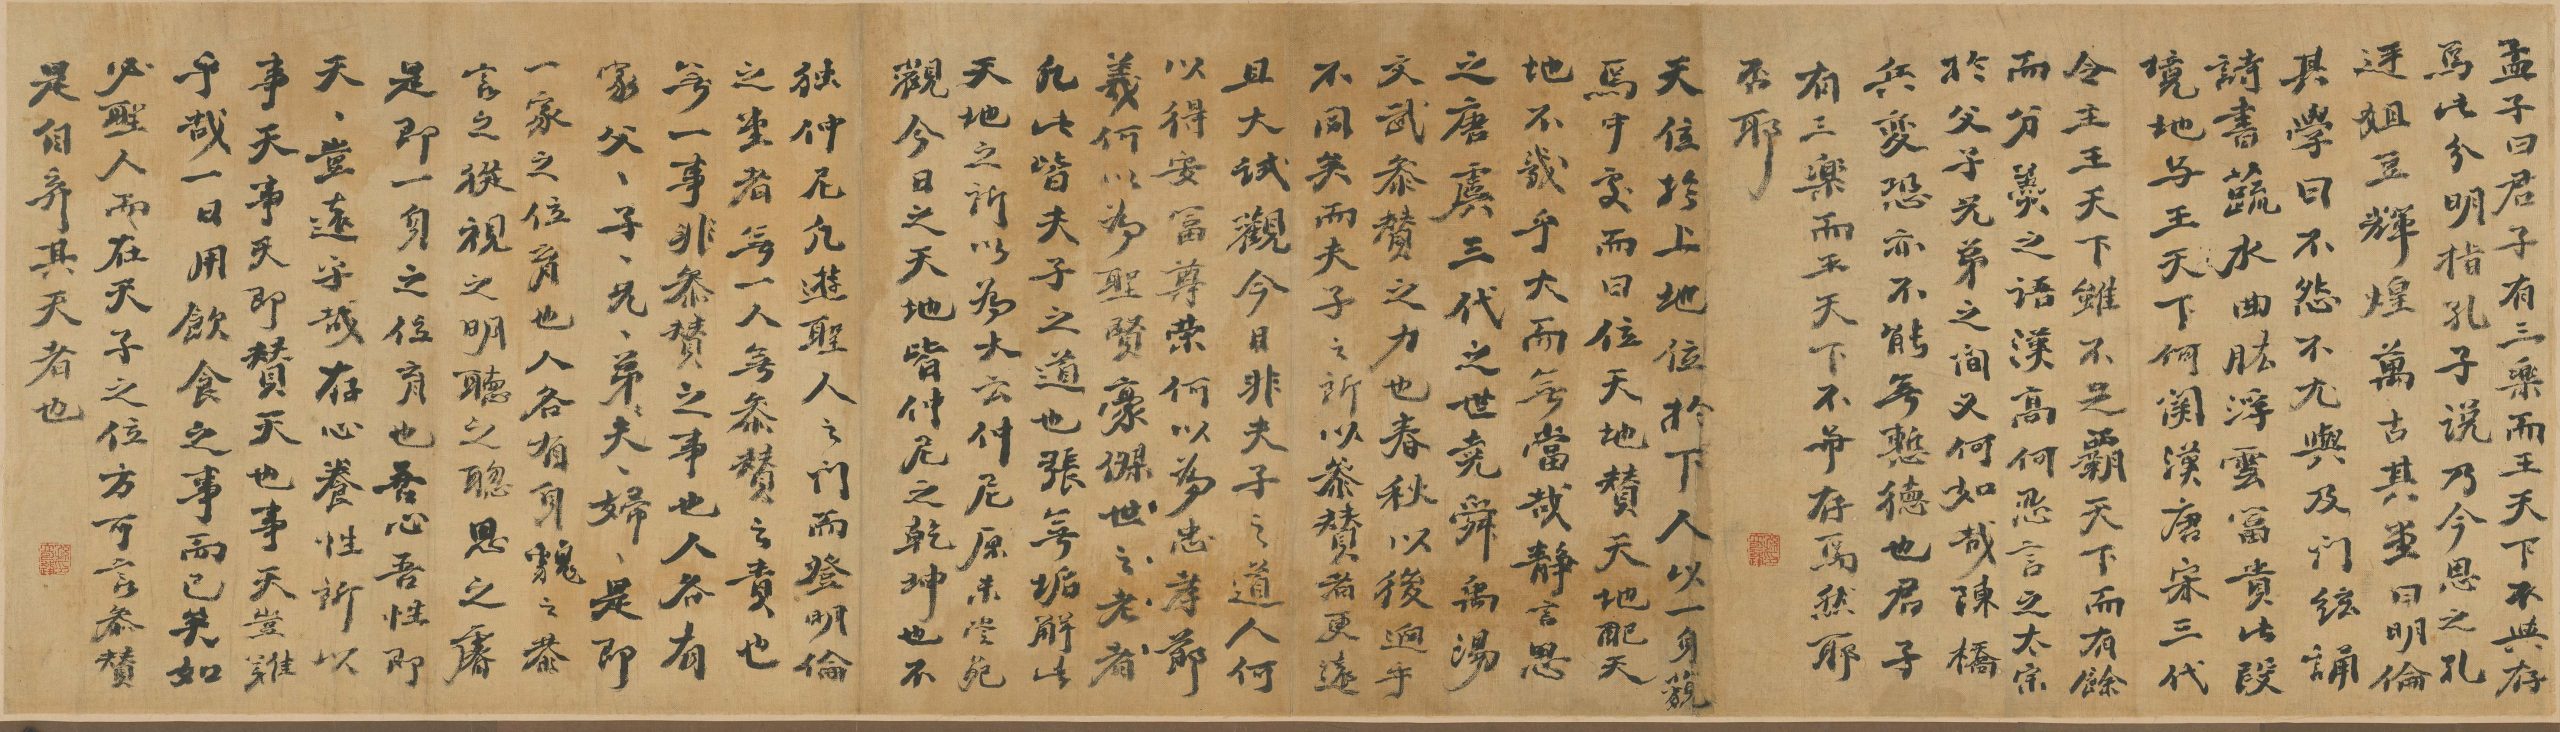 孟子曰君子有三樂而王天下不與存
焉此分明指孔子說乃今思之孔
廷俎豆輝煌萬古其堂曰明倫
其學曰不怨不尤與及门絃誦
詩書蔬水曲肱浮雲富貴此段
境地与王天下何関漢唐宋三代
令主王天下雖不足霸天下而有餘
而分羹之語漢高何忍言之太宗
於父子兄弟之间又何如哉陳橋
兵變恐亦不能無慙德也君子
有三樂而王天下不與存焉然耶
否耶
天位於上地位於下人以一身藐
焉中處而曰位天地贊天地配天
地不幾乎大而無當哉靜言思
之唐虞三代之世堯舜禹湯
文武參贊之力也春秋以後迥乎
不同矣而夫子之所以參贊者更遠
且大試觀今日非夫子之道人何
以得安富尊榮何以為忠孝節
義何以為聖賢豪傑世之老者
凡此皆夫子之道也張無垢解此
天地之所以為大云仲尼原未嘗死
觀今日之天地皆仲尼之乾坤也不
独仲尼凡遊聖人之门而登明倫
之堂者無一人無參贊之責也
無一事非參贊之事也人各有
家父、子、兄、弟、夫、婦、是即
一家之位育也人各有身貌之恭
言之從視之明聽之聰思之睿
是即一身之位育也吾心吾性即
天、豈遠乎哉存心養性所以
事天事天即贊天也事天豈難
乎哉一日用飲食之事而已矣如
必聖人而在天子之位方可言參贊
是自棄其天者也